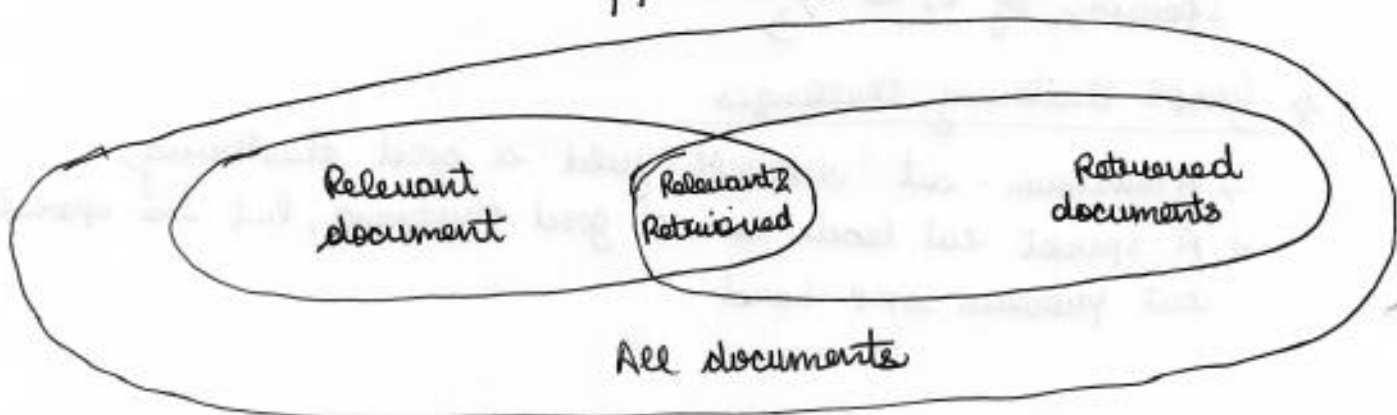 Relevant
document
Relevant &
Retrieved
Retrieved
documents
All documents